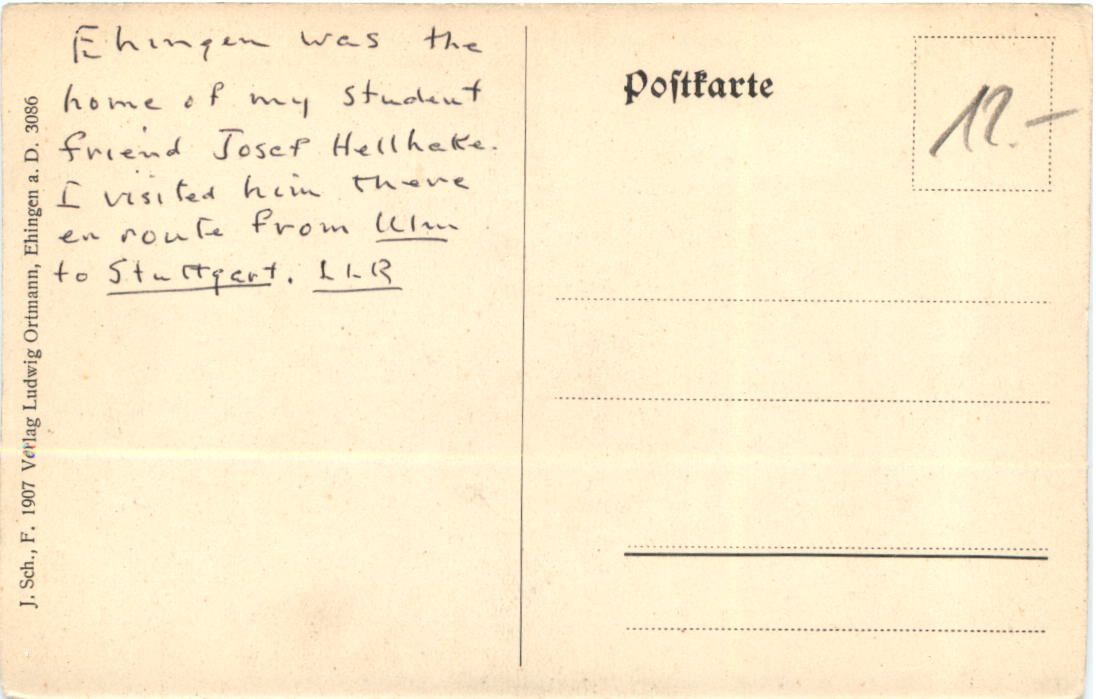 Ehingen was the
home of my student
friend Josef Hellhake.
I visited him there
en route from Ulm
to Stuttgart. LLR
J. Sch., F. 1907 Verlag Ludwig Ortmann, Ehingen a. D. 3086
Poſtkarte
12.-